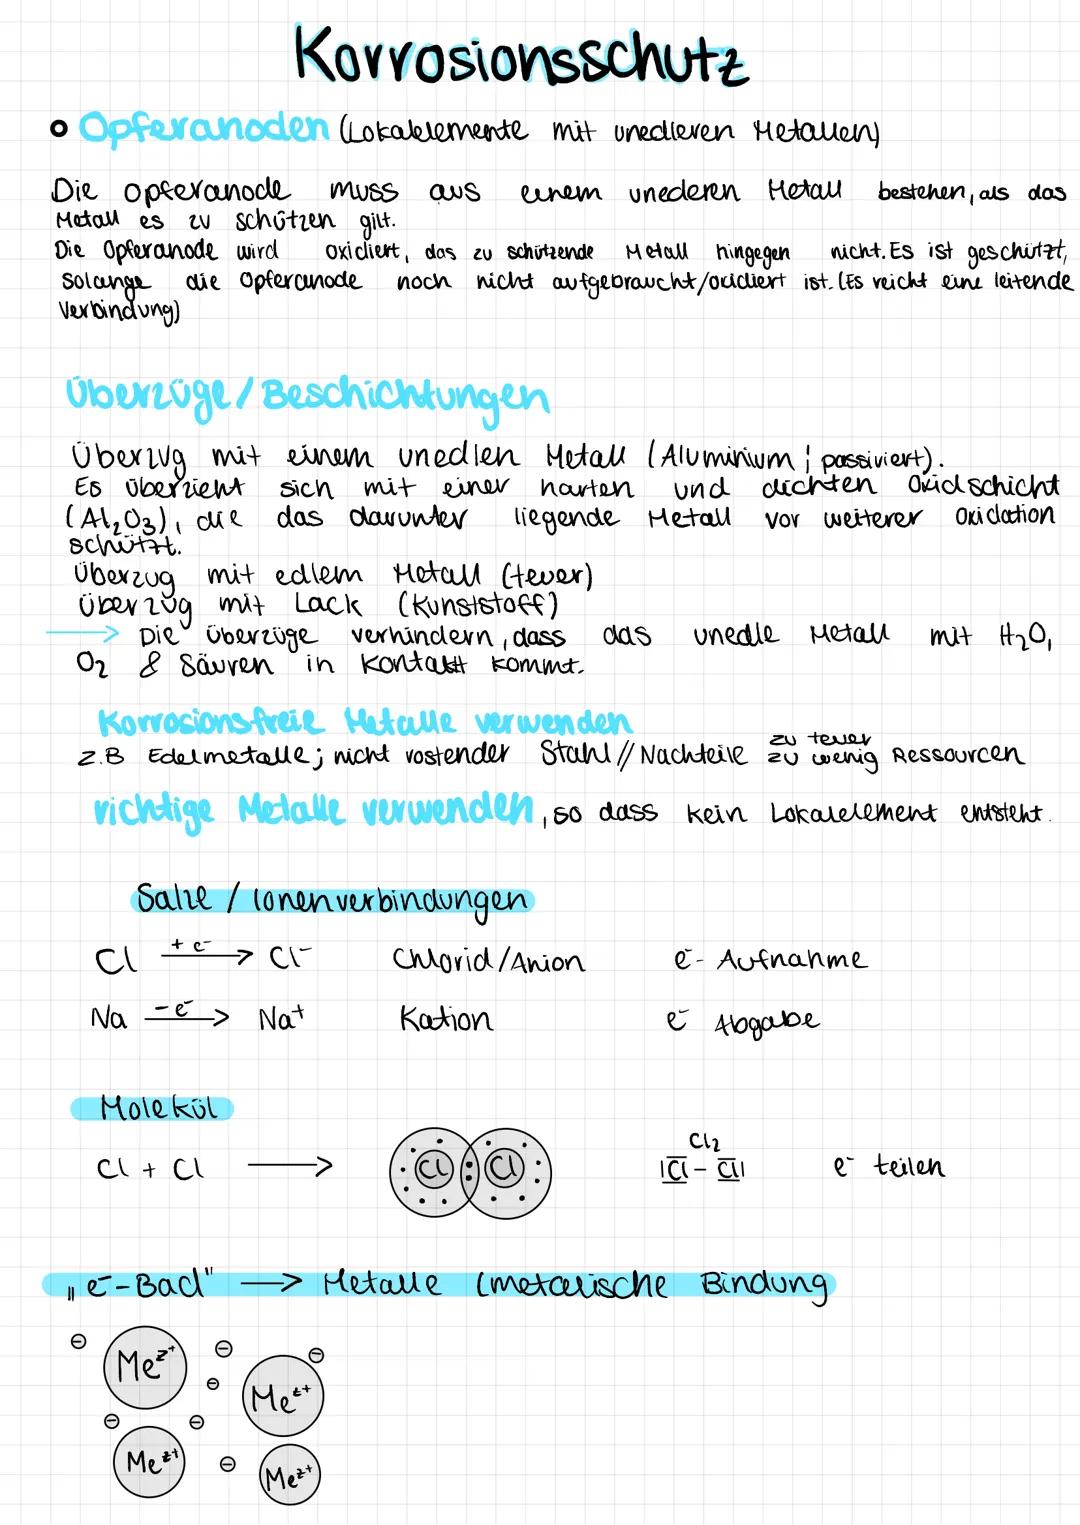 Korrosionsschutz
Opferanoden (Lokalelemente mit unedleren Metallen)
Die Opferanode muss aus einem unederen Metall bestehen, als das
Metall es zu schützen gilt.
Die Opferanode wird oxidiert, das zu schützende Metall hingegen nicht. Es ist geschützt,
solange die Opferanode noch nicht aufgebraucht/oxidiert ist. (Es reicht eine leitende
Verbindung)
Überzüge/Beschichtungen
Überzug mit einem unedlen Metall (Aluminium ; passiviert).
Es überzieht sich mit einer harten und dichten Oxidschicht
(Al₂O₃), die das darunter liegende Metall vor weiterer Oxidation
schützt.
Überzug mit edlem Metall (teuer)
Überzug mit Lack (Kunststoff)
→ Die Überzüge verhindern, dass das unedle Metall mit H₂O,
O₂ & Säuren in Kontakt kommt.
Korrosionsfreie Metalle verwenden
z.B Edelmetalle; nicht rostender Stahl // Nachteile zu teuer zu wenig Ressourcen
richtige Metalle verwenden, so dass kein Lokalelement entsteht.
Salze / Ionenverbindungen
Cl + e⁻ → Cl⁻ Chlorid/Anion e⁻- Aufnahme
Na - e⁻ → Na⁺ Kation e⁻ Abgabe
Molekül
Cl₂
Cl + Cl → Cl Cl |Cl - Cl| e⁻ teilen
„e⁻-Bad" → Metalle (metallische Bindung
Meᶻ⁺
Meᶻ⁺
Meᶻ⁺
Meᶻ⁺